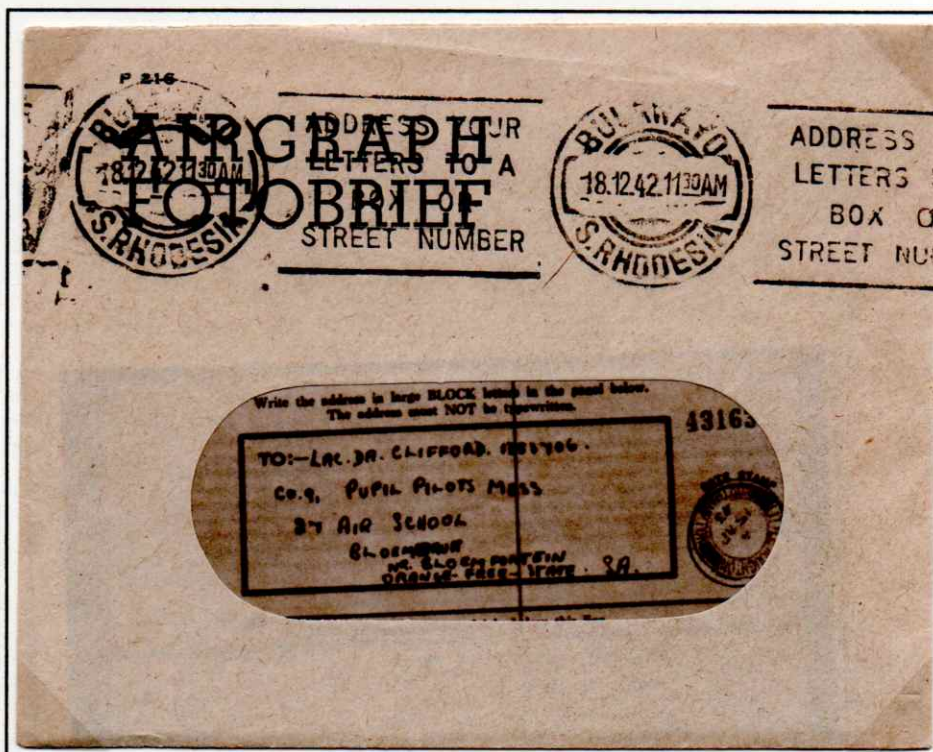 P 216
AIRGRAPH
FOTOBRIEF
BULAWAYO
18.12.42.1130AM
S.RHODESIA
ADDRESS YOUR
LETTERS TO A
BOX OR
STREET NUMBER
BULAWAYO
18.12.42.1130AM
S.RHODESIA
ADDRESS
LETTERS
BOX O
STREET NU
Write the address in large BLOCK letters in the panel below.
The address must NOT be typewritten.
43163
TO:— LAC. DA. CLIFFORD.
PUPIL PILOTS MESS
27 AIR SCHOOL
NR. BLOEMFONTEIN
ORANGE-FREE-STATE. SA.
DATE STAMP